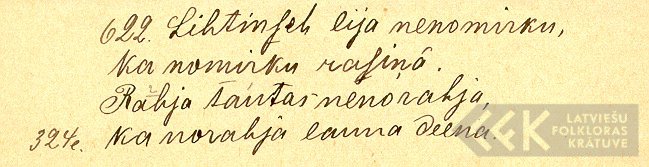 622. Lihtinſch lija nenomirku,
Ka nomirku raſiņâ.
Rahja tautas nenorahja,
324e. Ka norahja launa deena.
LATVIEŠU
FOLKLORAS
KRĀTUVE